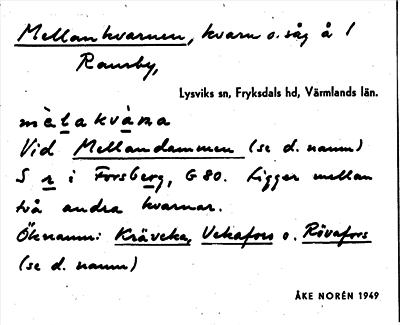 Mellankvarnen, kvarn o. såg å 1
Ransby,
Lysviks sn, Fryksdals hd, Värmlands län.
mèlakvàna
Vid Mellandammen (se d. namn)
S r i Forsberg, G 80. Ligger mellan
två andra kvarnar.
Öknamn: Krävcka, Vekafors o. Rövafors
(se d. namn)
ÅKE NORÉN 1949